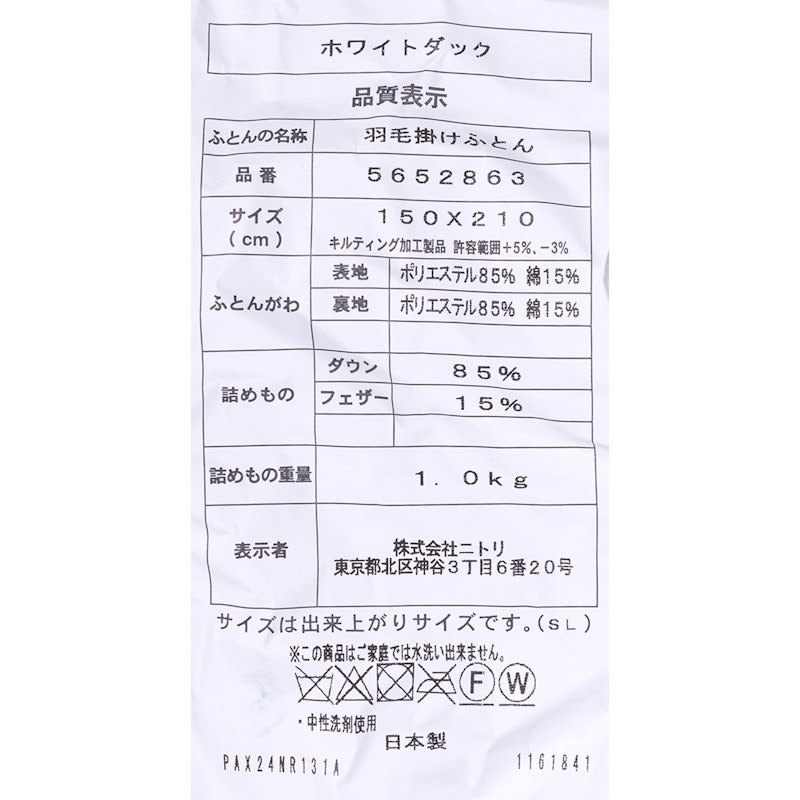 ホワイトダック
品質表示
ふとんの名称 羽毛掛けふとん
品番 5652863
サイズ(cm) 150X210
キルティング加工製品 許容範囲+5%、-3%
ふとんがわ 表地 ポリエステル85% 綿15%
裏地 ポリエステル85% 綿15%
詰めもの ダウン 85%
フェザー 15%
詰めもの重量 1.0kg
表示者 株式会社ニトリ
東京都北区神谷3丁目6番20号
サイズは出来上がりサイズです。(SL)
※この商品はご家庭では水洗い出来ません。
F W
・中性洗剤使用
日本製
PAX24NR131A 1161841